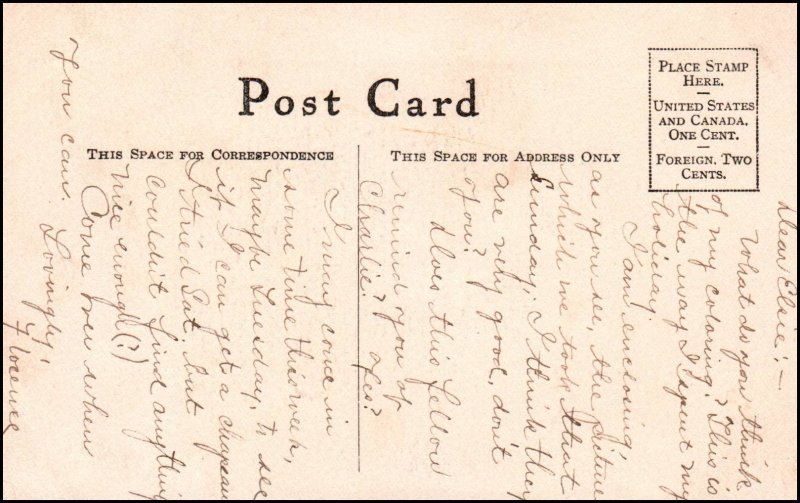 Post Card
THIS SPACE FOR CORRESPONDENCE
THIS SPACE FOR ADDRESS ONLY
PLACE STAMP
HERE.
UNITED STATES
AND CANADA,
ONE CENT.
FOREIGN, TWO
CENTS.
Dear Elsie:—
What do you think
of my coloring? This is
the way I spent my
holiday.
I am enclosing,
as you see, the picture
which we took that
Sunday. I think they
are very good, don't
you?
Does this fellow
remind you of
Charlie? Yes?
I may come in
some time this week,
maybe Tuesday, to see
if I can get a chapeau
I tried Sat. but
couldn't find anything
nice enough(?)
Come over when
you can.
Lovingly,
Florence